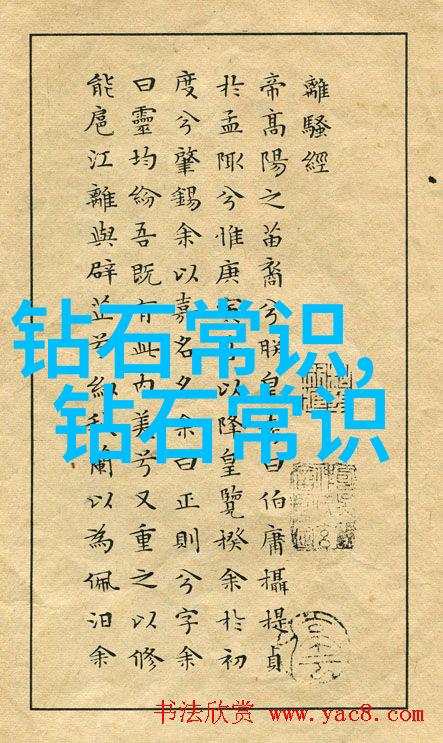 離騷經
帝高陽之苗裔兮朕皇曰伯庸攝提貞
於孟陬兮惟庚以降皇覽揆余於初
度兮肇錫余以嘉名名余曰正則兮字余
曰靈均紛吾既有此內美兮又重之以修
能扈江離與辟芷兮紉秋蘭以為佩汩余
钻石常识,
钻石常识
书法欣赏 www.yac8.com